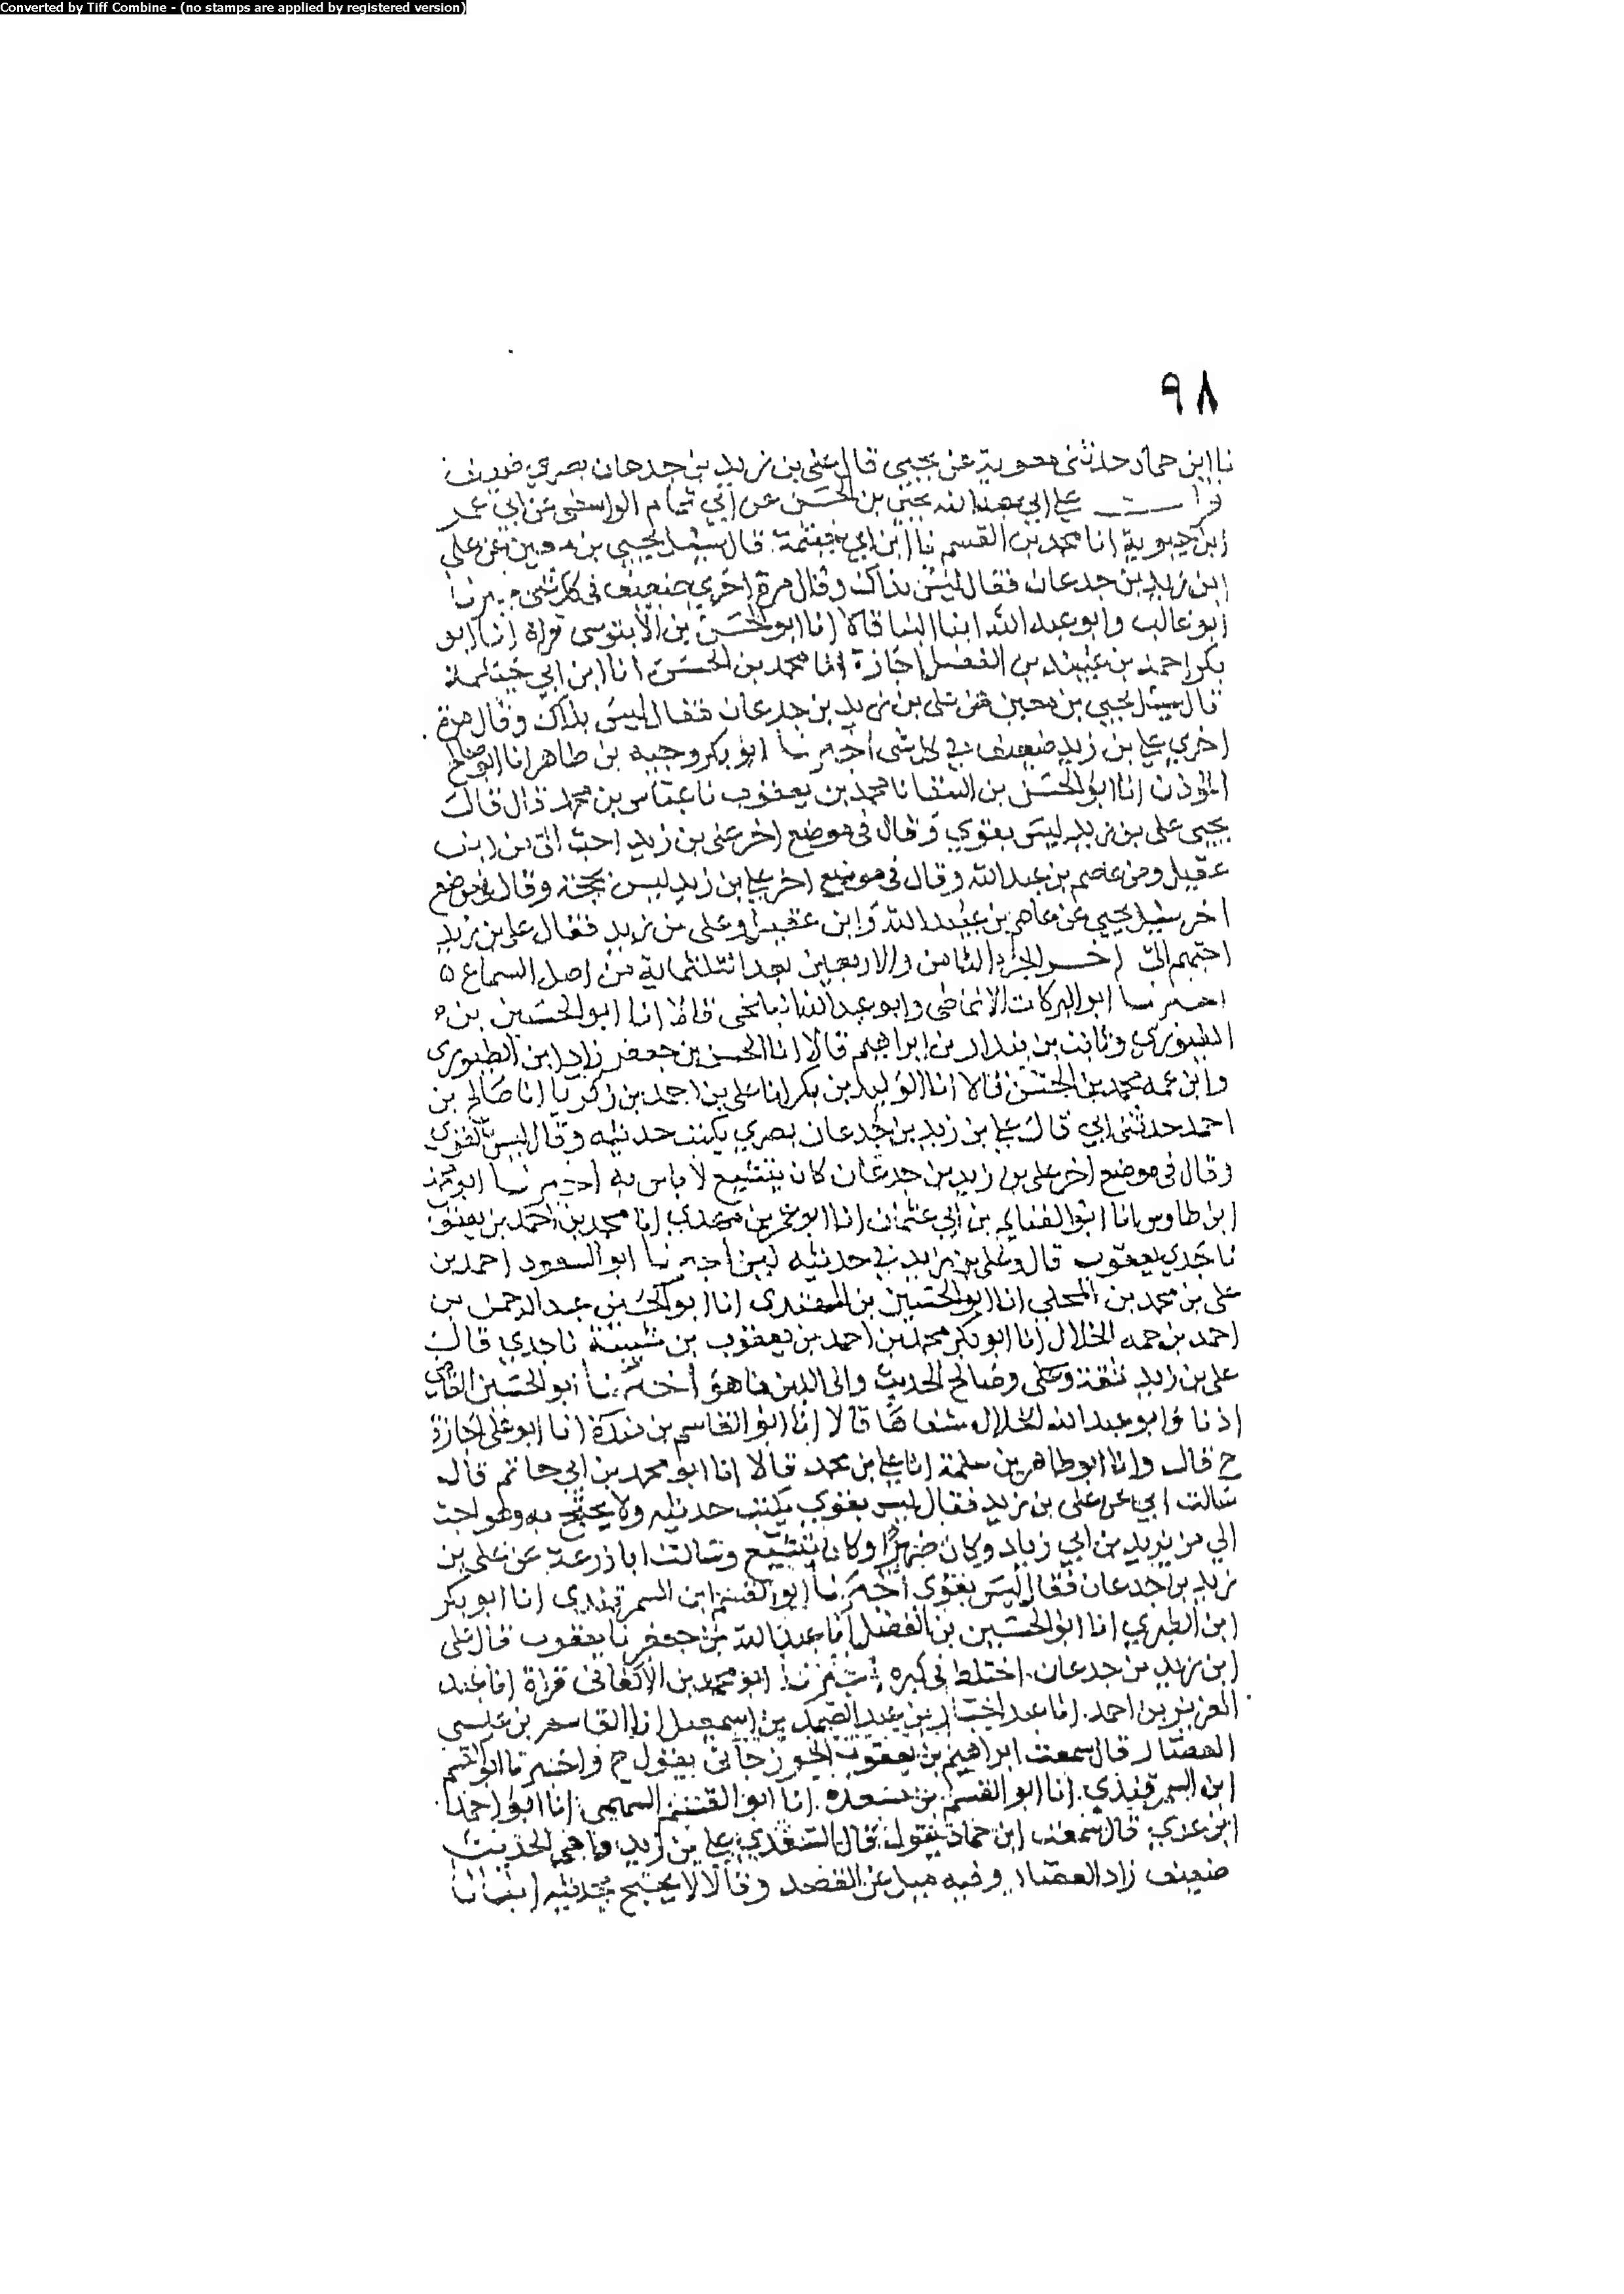 Converted by Tiff Combine - (no stamps are applied by registered version)
٩٨
نا ابن حماد حدثنى معوية عن يحيى قال على بن زيد بن جدعان بصري ضعيف
قرات على ابي عبد الله يحيى بن الحسن عن ابي تمام الواسطى عن ابي عمر
ابن حيوية انا محمد بن القسم نا ابن ابي خيثمة قال سئل يحيى بن معين عن على
ابن زيد بن جدعان فقال ليس بذاك وقال مرة اخري ضعيف في كل شى اخبرنا
ابو غالب وابو عبد الله ابنا البنا قالا انا ابو الحسن بن الابنوسى قراة انا ابو
بكر احمد بن عبيد بن الفضل اجازة انا محمد بن الحسن انا ابن ابي خيثمة
قال سئل يحيى بن معين عن على بن زيد بن جدعان فقال ليس بذاك وقال مرة
اخري على بن زيد ضعيف في كل شى اخبرنا ابو بكر وجيه بن طاهر انا ابو صالح
المؤذن انا ابو الحسن بن السقا نا محمد بن يعقوب نا عباس بن محمد قال قال
يحيى على بن زيد ليس بقوي وقال في موضع اخر على بن زيد احب الى من ابن
عقيل ومن عاصم بن عبيد الله وقال في موضع اخر على بن زيد ليس بحجة وقال في موضع
اخر سئل يحيى عن عاصم بن عبيد الله وابن عقيل وعلى بن زيد فقال على بن زيد
احبهم الى اخر الجزء الثامن والاربعين بعد الثلثماية من اصل السماع ٥
اخبرنا ابو البركات الانماطى وابو عبد الله البلخى قالا انا ابو الحسين بن
الطيوري وثابت بن بندار بن ابراهيم قالا انا الحسين بن جعفر زاد ابن الطيورى
وابن عمه محمد بن الحسن قالا انا الوليد بن بكر انا على بن احمد بن زكريا انا صالح بن
احمد حدثنى ابي قال على بن زيد بن جدعان بصري يكتب حديثه وقال ليس بالقوي
وقال في موضع اخر على بن زيد بن جدعان كان يتشيع لا باس به اخبرنا ابو محمد
ابن طاوس انا ابو الغنايم بن ابي عثمان انا ابو عمر بن مهدي انا محمد بن احمد بن يعقوب
نا جدي يعقوب قال وعلى بن زيد في حديثه لين اخبرنا ابو السعود احمد بن
على بن محمد بن المجلي انا ابو الحسين بن المهتدى انا ابو الحسين عبد الرحمن بن
احمد بن حمه الخلال انا ابو بكر محمد بن احمد بن يعقوب بن شيبة نا جدي قال
على بن زيد ثقة وعلى وصالح الحديث والى اللين ما هو اخبرنا ابو الحسين القاضي
اذنا وابو عبد الله الخلال شفاها قالا انا ابو القاسم بن مندة انا ابو على اجازة
ح قال وانا ابو طاهر بن سلمة انا على بن محمد قالا انا ابو محمد بن ابي حاتم قال
سالت ابي عن على بن زيد فقال ليس بقوي يكتب حديثه ولا يحتج به وهو احب
الي من يزيد بن ابي زياد وكان ضريرا وكان يتشيع وسالت ابا زرعة عن على بن
زيد بن جدعان فقال ليس بقوى اخبرنا ابو القسم ابن السمرقندى انا ابو بكر
ابن الطبري انا ابو الحسين بن الفضل انا عبد الله بن جعفر نا يعقوب قال على
ابن زيد بن جدعان اختلط في كبره اخبرنا ابو محمد بن الاكفاني قراة انا عبد
العزيز بن احمد انا عبد الجبار بن عبد الصمد بن اسمعيل انا القاسم بن عيسى
العصار قال سمعت ابراهيم بن يعقوب الجوزجاني يقول ح واخبرنا ابو القسم
ابن السمرقندي انا ابو القسم بن مسعدة انا ابو القسم السهمى انا ابو احمد
ابن عدي قال سمعت ابن حماد يقول قال السعدي على بن زيد واهى الحديث
ضعيف زاد العصار وفيه ميل عن القصد وقالا لا يحتج بحديثه انبانا